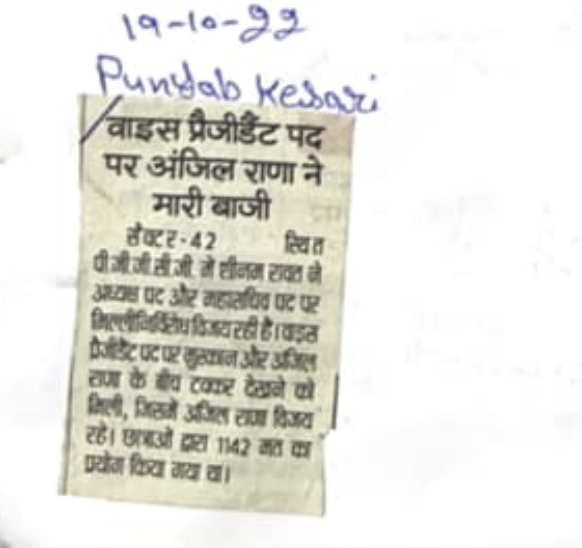 19-10-22
Punjab Kesari
वाइस प्रैजीडैंट पद
पर अंजिल राणा ने
मारी बाजी
सैक्टर-42 स्थित
पी.जी.जी.सी.जी. में शीनम रावत ने
अध्यक्ष पद और महासचिव पद पर
निर्विरोध विजय रही है। वाइस
प्रैजीडैंट पद पर मुस्कान और अंजिल
राणा के बीच टक्कर देखने को
मिली, जिसमें अंजिल राणा विजय
रहे। छात्राओं द्वारा 1142 मत का
प्रयोग किया गया था।